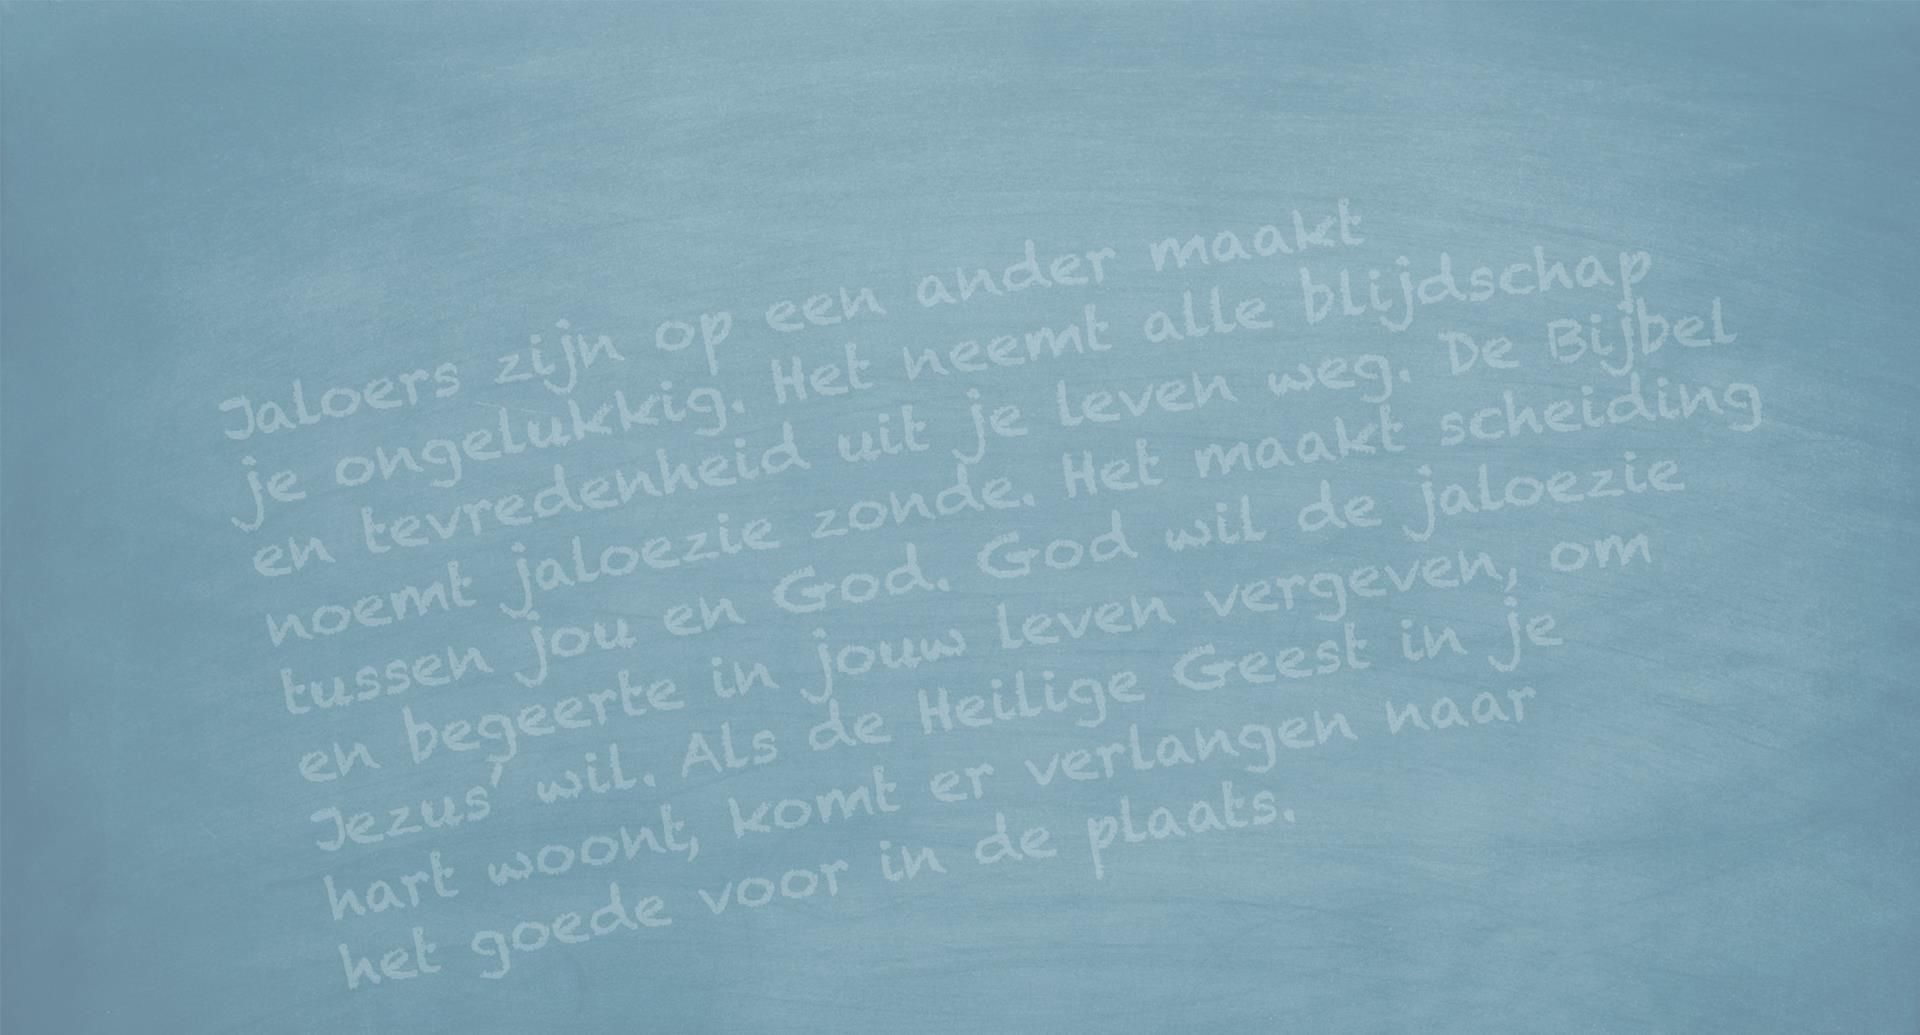 Jaloers zijn op een ander maakt
je ongelukkig. Het neemt alle blijdschap
en tevredenheid uit je leven weg. De Bijbel
noemt jaloezie zonde. Het maakt scheiding
tussen jou en God. God wil de jaloezie
en begeerte in jouw leven vergeven, om
Jezus’ wil. Als de Heilige Geest in je
hart woont, komt er verlangen naar
het goede voor in de plaats.